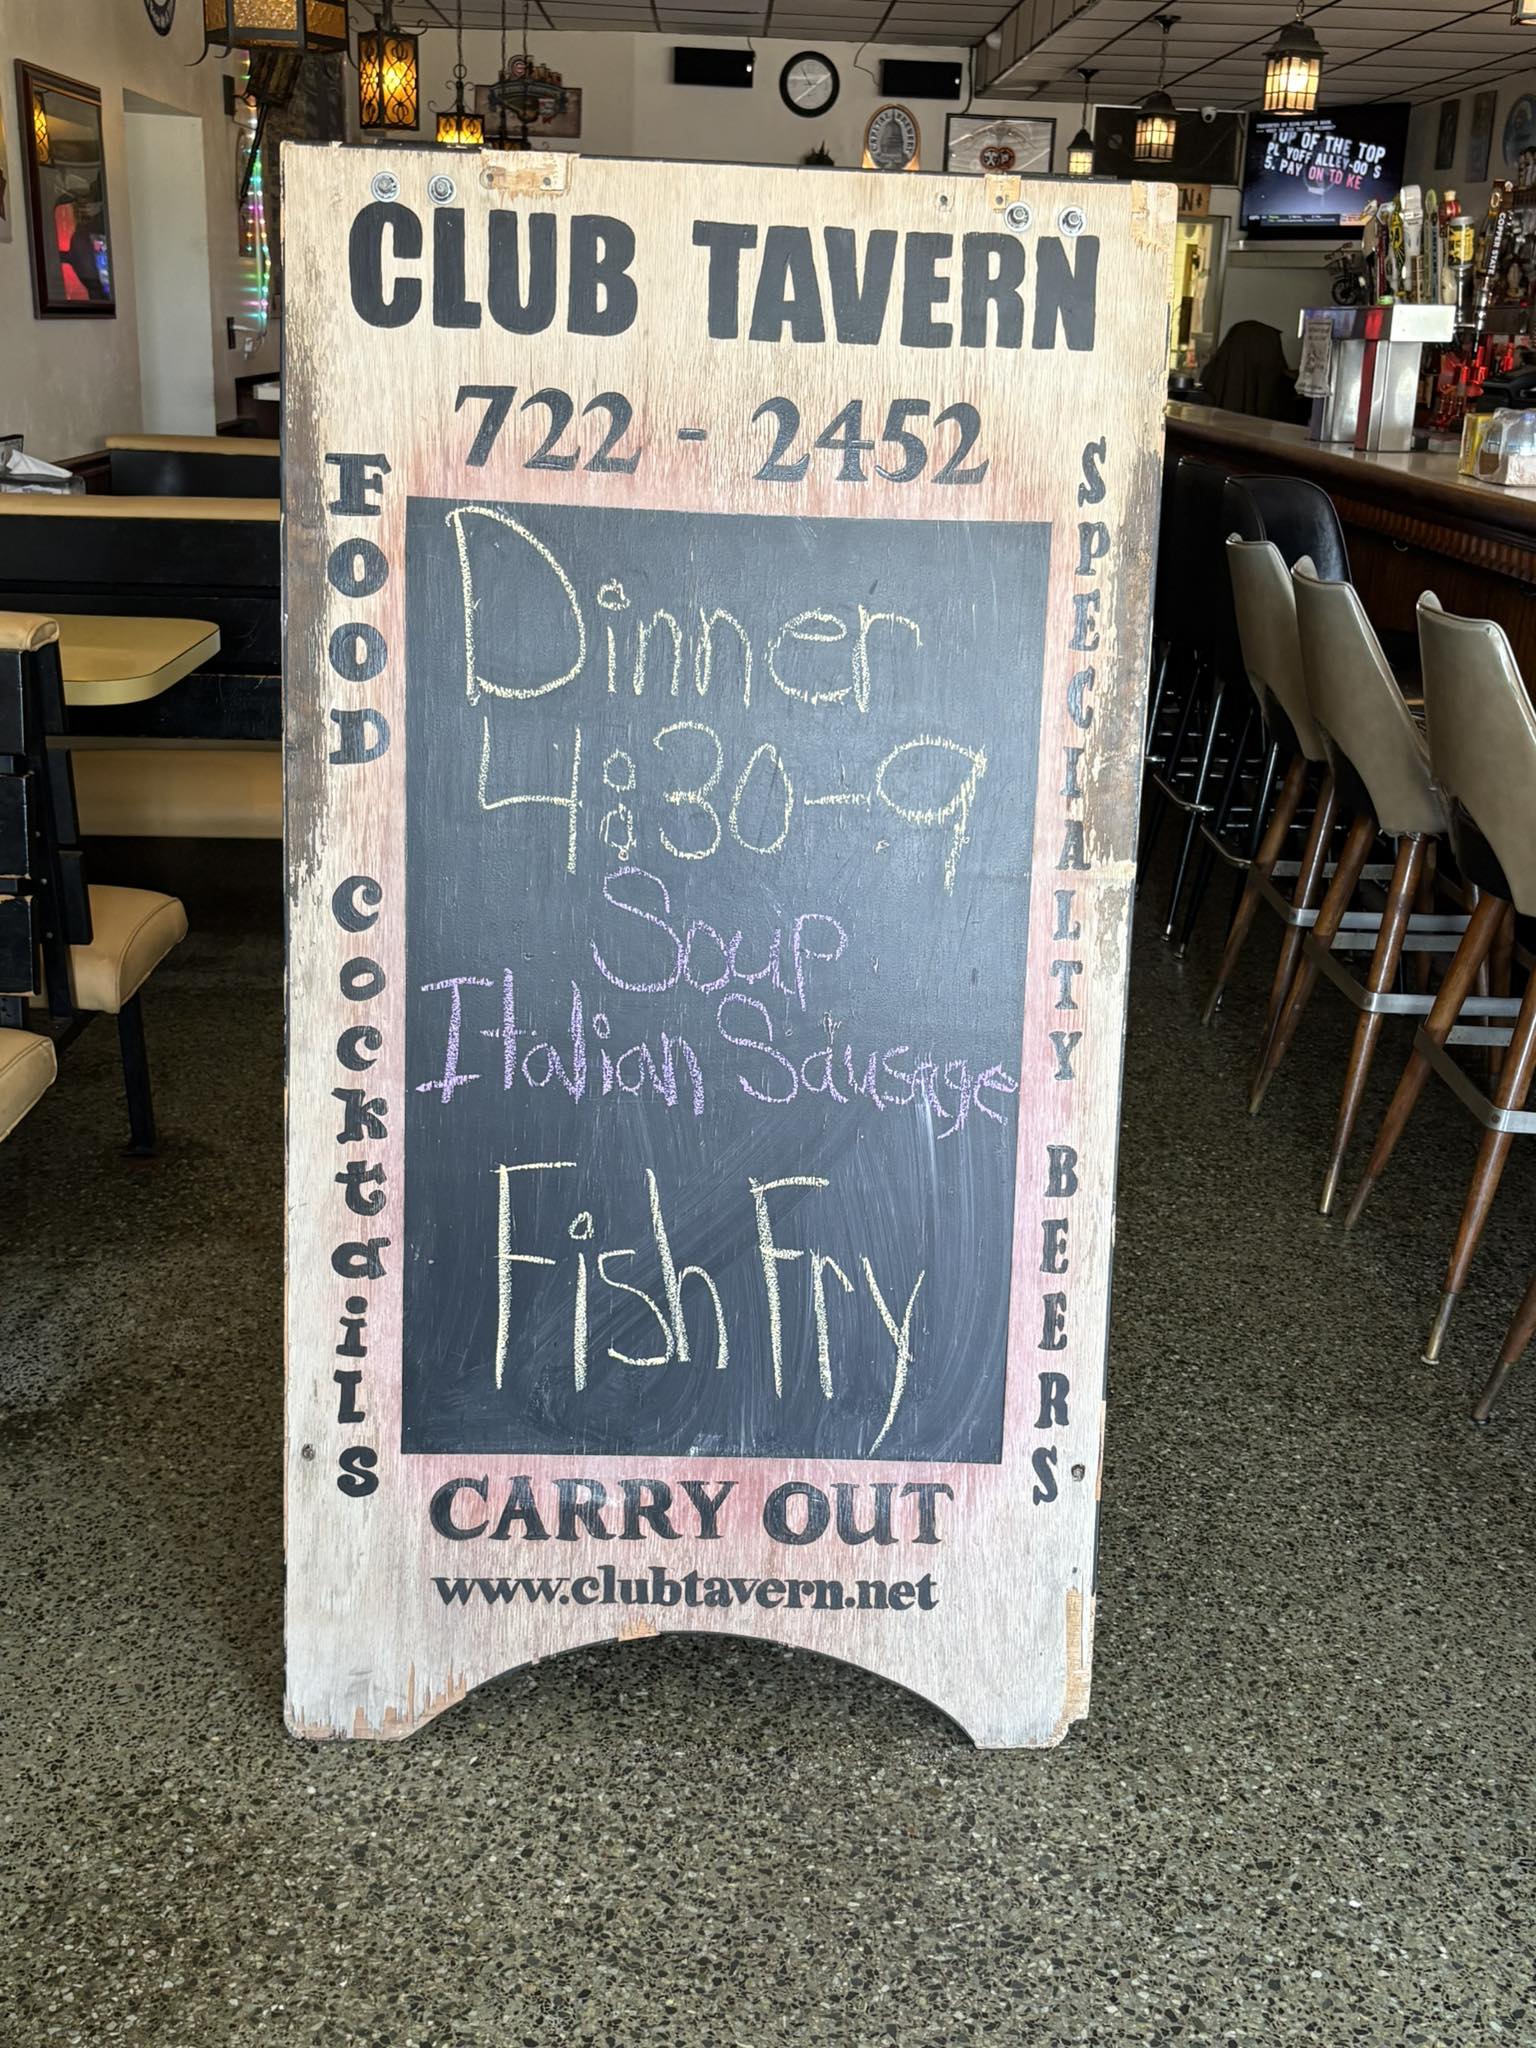 CLUB TAVERN
722-2452
FOOD
COCKtaiLS
SPECIALTY BEERS
Dinner
4:30-9
Soup
Italian Sausage
Fish Fry
CARRY OUT
www.clubtavern.net
TOP OF THE TOP
PL YOFF ALLEY-OO S
5. PAY ON TO KE
CAPITAL BREWERY